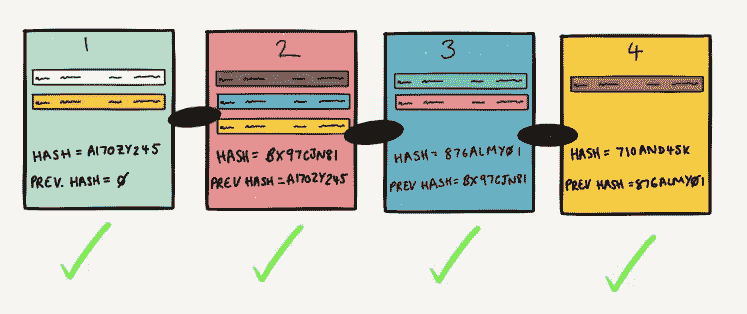 1
HASH = A170ZY245
PREV. HASH = Ø
2
HASH = BX97CJN81
PREV HASH = A170ZY245
3
HASH = 876ALMYØ1
PREV HASH = BX97CJN81
4
HASH = 710AND45K
PREV HASH = 876ALMYØ1